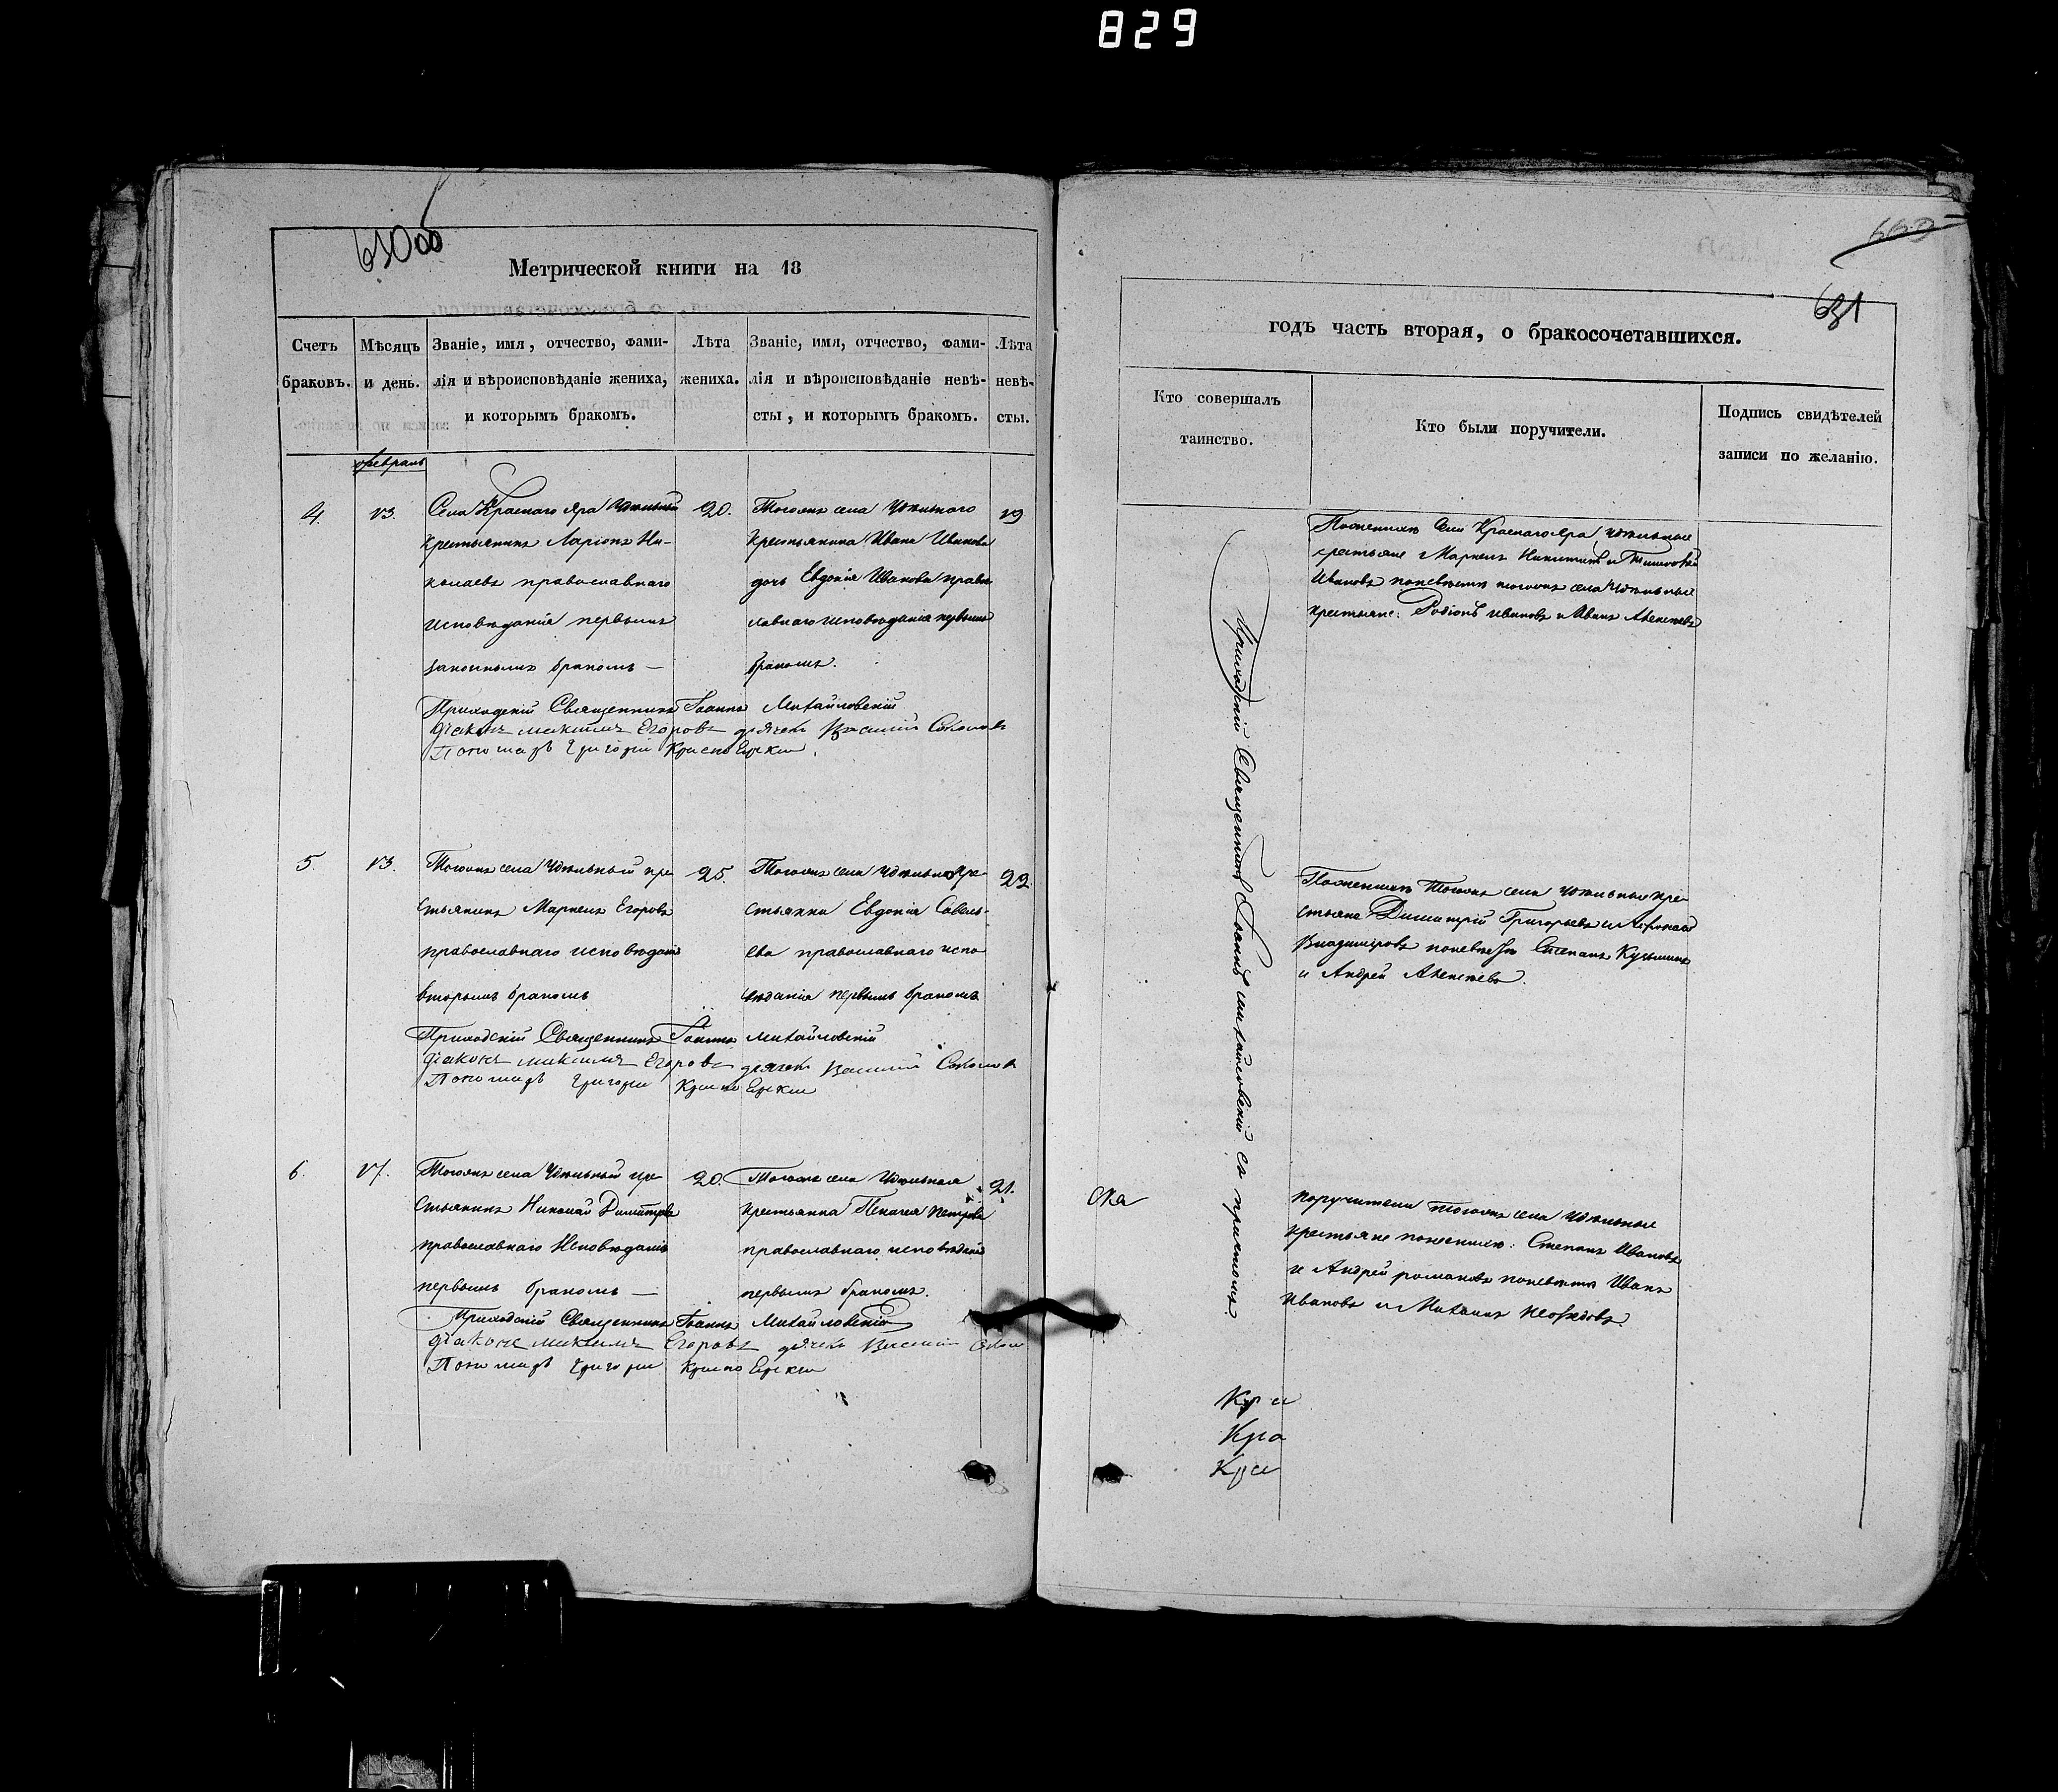 829
630 об
Метрической книги на 18
Счетъ браковъ.
Мѣсяцъ и день.
Званіе, имя, отчество, фами-
лія и вѣроисповѣданіе жениха,
и которымъ бракомъ.
Лѣта
жениха.
Званіе, имя, отчество, фами-
лія и вѣроисповѣданіе невѣ-
сты, и которымъ бракомъ.
Лѣта
невѣ-
сты.
февраль
4.
13.
Села Краснаго Яра Удѣльный
крестьянинъ Ларіонъ Ни-
колаевъ православнаго
исповѣданія первымъ
законнымъ бракомъ —
20.
Тогожъ села Удѣльнаго
крестьянина Ивана Иванова
дочь Евдокія Иванова право
славнаго исповѣданія первымъ
бракомъ.
19
Приходскій Священникъ Іоаннъ Михайловскій
діаконъ Максимъ Егоровъ дьячекъ Василій Соколовъ
Пономарь Григорій
5.
13.
Тогожъ села Удѣльный кре
стьянинъ Маркелъ Егоровъ
православнаго исповѣдані
вторымъ бракомъ
25.
Тогожъ села Удѣльна кре
стьянка Евдокія Савель-
ева православнаго испо
вѣданія первымъ бракомъ
22.
Приходскій Священникъ Іоаннъ Михайловскій
діаконъ Максимъ Егоровъ дьячекъ Василій Соколовъ
Пономарь Григорій
6.
17.
Тогожъ села Удѣльный кре
стьянинъ Николай Димитріев
православнаго Исповѣданія
первымъ бракомъ —
20.
Тогожъ села Удѣльная
крестьянка Пелагея Петрова
православнаго исповѣдані
первымъ бракомъ.
21.
Приходскій Священникъ Іоаннъ Михайловскій
діаконъ Максимъ Егоровъ дьячекъ Василій Соко
Пономарь Григорій
631
годъ часть вторая, о бракосочетавшихся.
Кто совершалъ
таинство.
Кто были поручители.
Подпись свидѣтелей
записи по желанію.
Приходскій Священникъ Іоаннъ Михайловскій съ причтомъ
Поженихѣ Села Краснаго Яра Удѣльные
крестьяне Маркелъ Никитинъ и Тимофей
Ивановъ поневѣстѣ тогожъ села Удѣльные
крестьяне: Родіонъ Ивановъ и Иванъ Алексѣевъ
Поженихѣ Тогожъ села Удѣльные кре-
стьяне Димитрій Григорьевъ и
Владиміровъ поневѣстѣ Степанъ Кузьминъ
и Андрей Алексѣевъ.
ска
Поручители тогожъ села Удѣльные
крестьяне поженихѣ: Степанъ Ивановъ
и Андрей Романовъ поневѣстѣ Иванъ
Ивановъ и Михаилъ
Кра
Кра
Кра